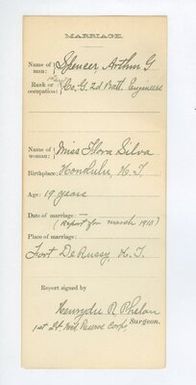 MARRIAGE.
Name of man: } Spencer, Arthur G
Rank or occupation: } Co. G. 2d Batl. Engineers
Name of woman: } Miss Flora Silva
Birthplace: Honolulu, H. T.
Age: 19 years
Date of marriage:
(Report for March 1918)
Place of marriage:
Fort DeRussy, H. T.
Report signed by
R Phelan
1st Lt Med Reserve Corps, Surgeon.